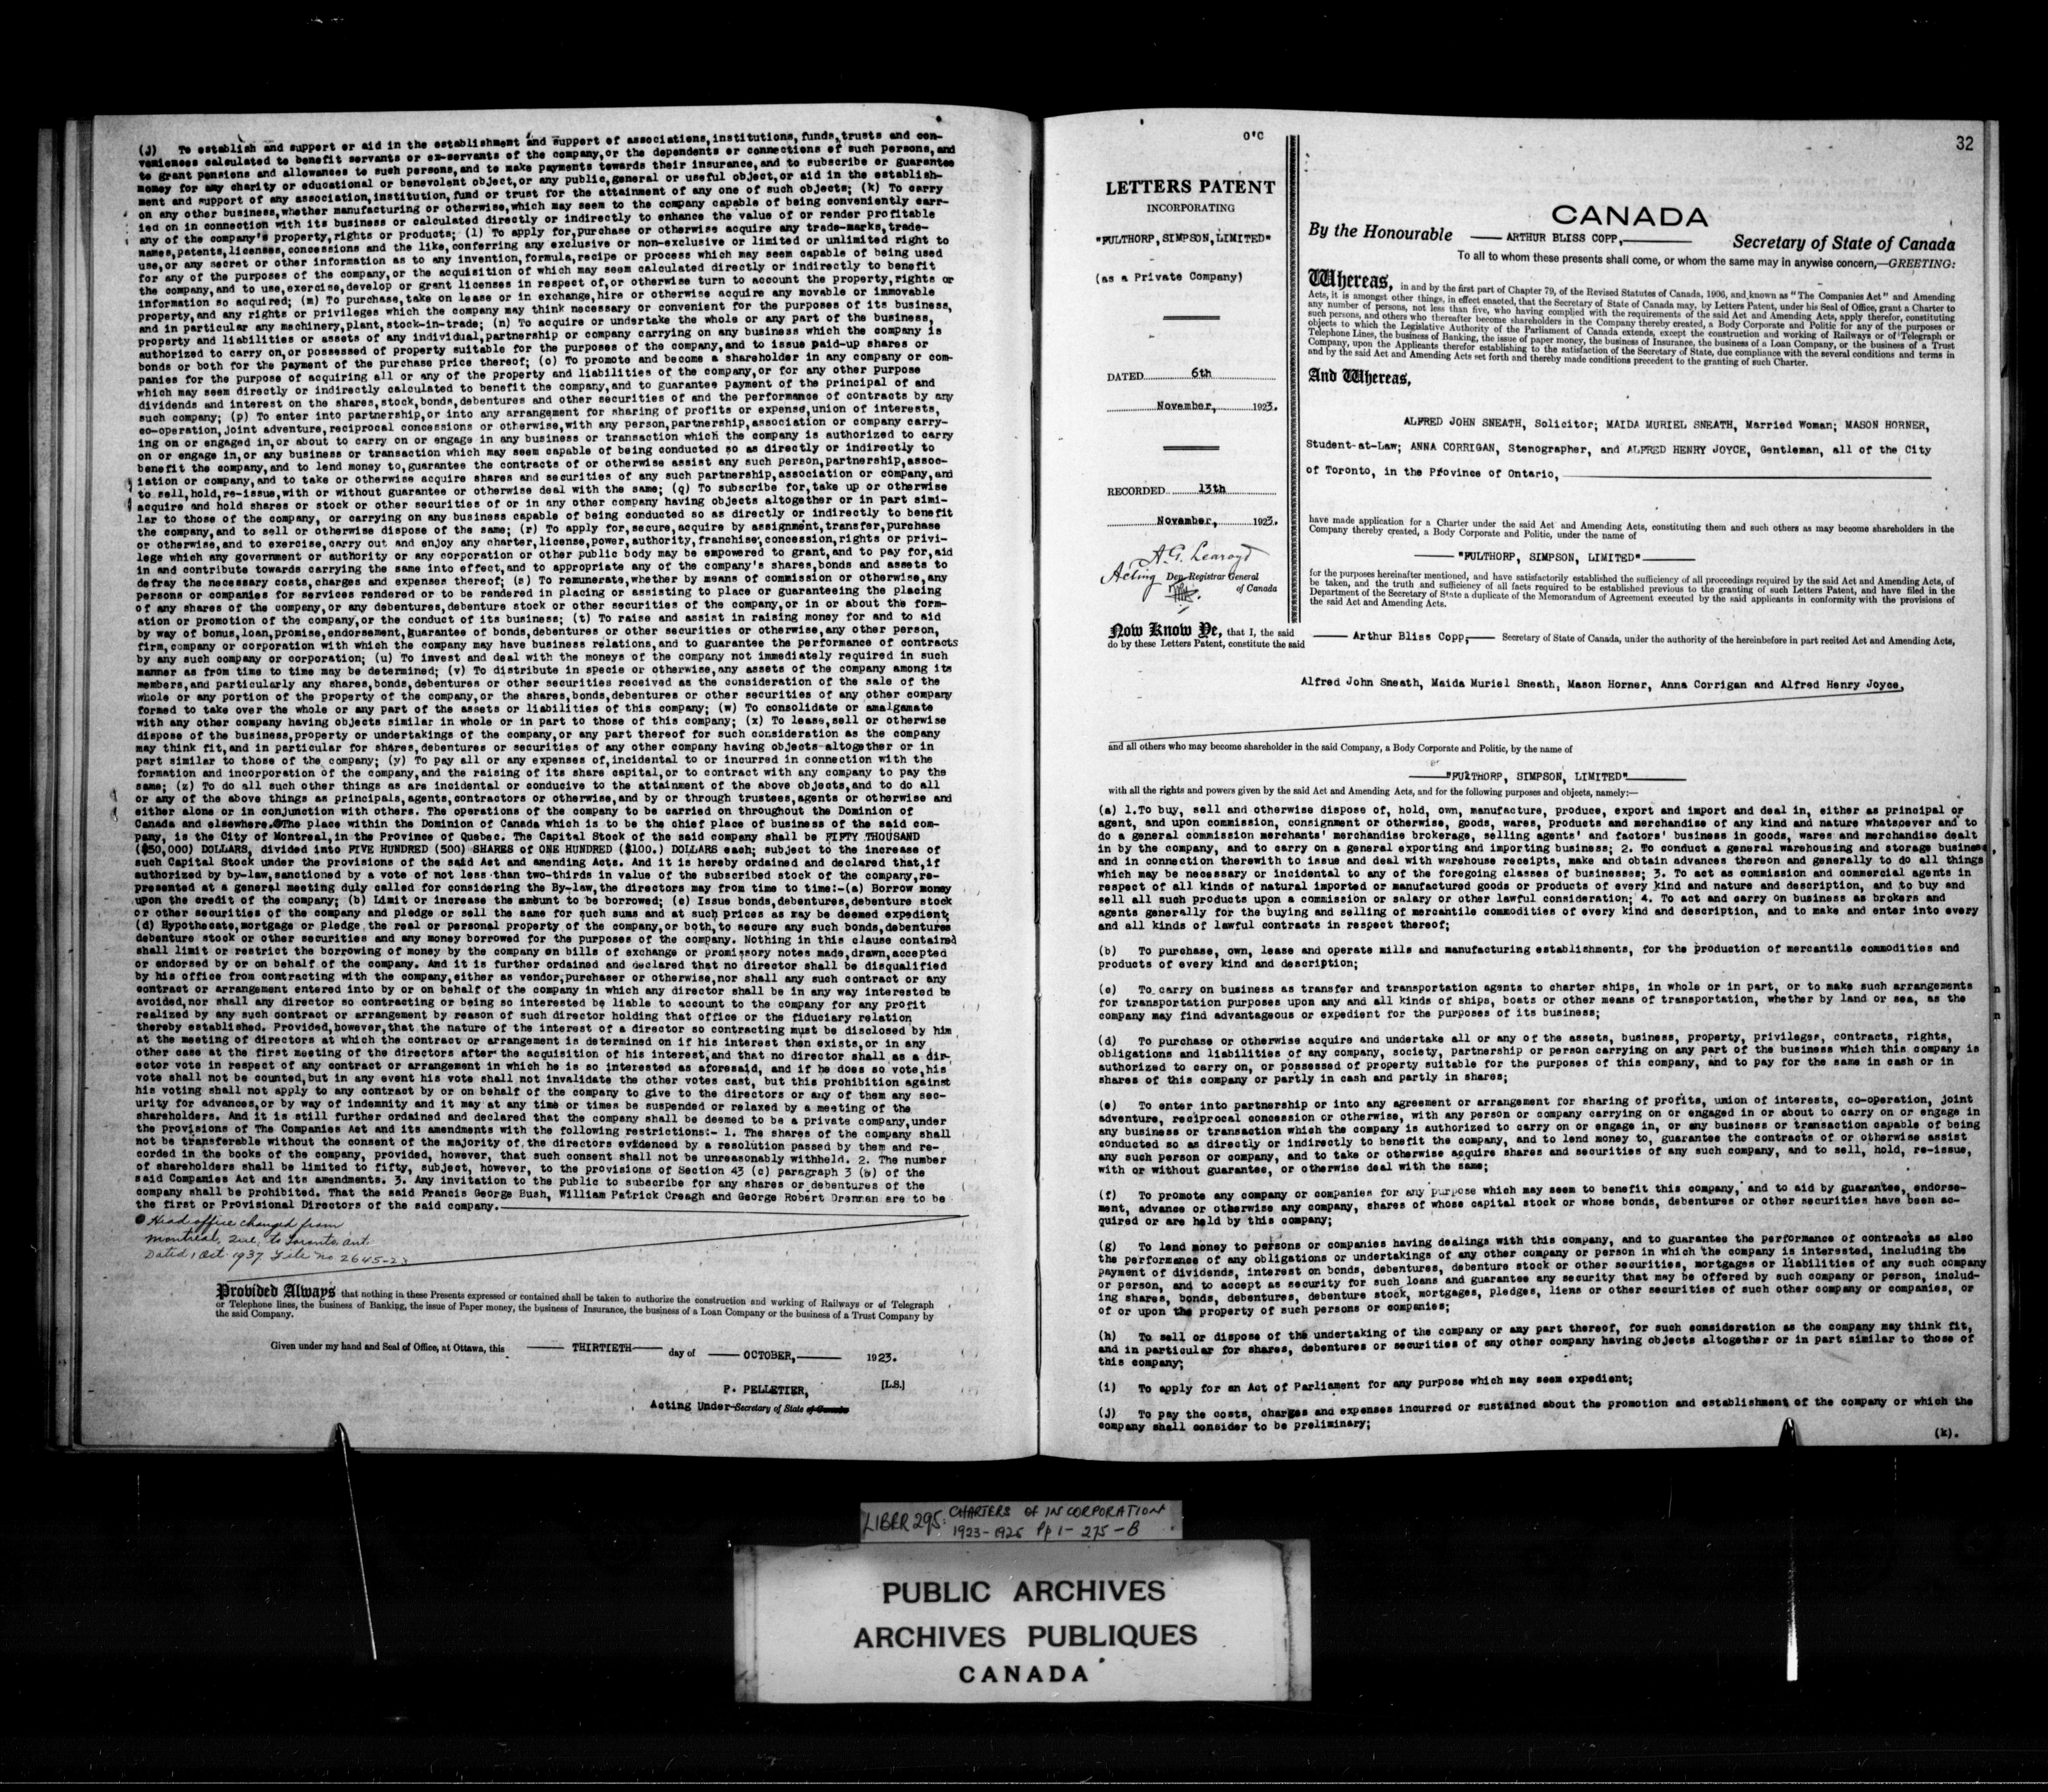 (j) To establish and support or aid in the establishment and support of associations,institutions,funds,trusts and con-
veniences calculated to benefit servants or ex-servants of the company,or the dependents or connections of such persons,and
to grant pensions and allowances to such persons,and to make payments towards their insurance,and to subscribe or guarantee
money for any charity or educational or benevolent object,or any public,general or useful object,or aid in the establish-
ment and support of any association,institution,fund or trust for the attainment of any one of such objects; (k) To carry
on any other business,whether manufacturing or otherwise,which may seem to the company capable of being conveniently carr-
ied on in connection with its business or calculated directly or indirectly to enhance the value of or render profitable
any of the company's property,rights or products; (l) To apply for,purchase or otherwise acquire any trade-marks,trade-
names,patents,licenses,concessions and the like,conferring any exclusive or non-exclusive or limited or unlimited right to
use,or any secret or other information as to any invention,formula,recipe or process which may seem capable of being used
for any of the purposes of the company,or the acquisition of which may seem calculated directly or indirectly to benefit
the company,and to use,exercise,develop or grant licenses in respect of,or otherwise turn to account the property,rights or
information so acquired; (m) To purchase,take on lease or in exchange,hire or otherwise acquire any movable or immovable
property,and any rights or privileges which the company may think necessary or convenient for the purposes of its business,
and in particular any machinery,plant,stock-in-trade; (n) To acquire or undertake the whole or any part of the business,
property and liabilities or assets of any individual,partnership or company carrying on any business which the company is
authorized to carry on,or possessed of property suitable for the purposes of the company,and to issue paid-up shares or
bonds or both for the payment of the purchase price thereof; (o) To promote and become a shareholder in any company or com-
panies for the purpose of acquiring all or any of the property and liabilities of the company,or for any other purpose
which may seem directly or indirectly calculated to benefit the company,and to guarantee payment of the principal of and
dividends and interest on the shares,stock,bonds,debentures and other securities of and the performance of contracts by any
such company; (p) To enter into partnership,or into any arrangement for sharing of profits or expense,union of interests,
co-operation,joint adventure,reciprocal concessions or otherwise,with any person,partnership,association or company carry-
ing on or engaged in,or about to carry on or engage in any business or transaction which the company is authorized to carry
on or engage in,or any business or transaction which may seem capable of being conducted so as directly or indirectly to
benefit the company,and to lend money to,guarantee the contracts of or otherwise assist any such person,partnership,assoc-
iation or company,and to take or otherwise acquire shares and securities of any such partnership,association or company,and
to sell,hold,re-issue,with or without guarantee or otherwise deal with the same; (q) To subscribe for,take up or otherwise
acquire and hold shares or stock or other securities of or in any other company having objects altogether or in part simi-
lar to those of the company, or carrying on any business capable of being conducted so as directly or indirectly to benefit
the company,and to sell or otherwise dispose of the same; (r) To apply for,secure,acquire by assignment,transfer,purchase
or otherwise,and to exercise,carry out and enjoy any charter,license,power,authority,franchise,concession,rights or privi-
lege which any government or authority or any corporation or other public body may be empowered to grant,and to pay for,aid
in and contribute towards carrying the same into effect,and to appropriate any of the company's shares,bonds and assets to
defray the necessary costs,charges and expenses thereof; (s) To remunerate,whether by means of commission or otherwise,any
persons or companies for services rendered or to be rendered in placing or assisting to place or guaranteeing the placing
of any shares of the company,or any debentures,debenture stock or other securities of the company,or in or about the form-
ation or promotion of the company,or the conduct of its business; (t) To raise and assist in raising money for and to aid
by way of bonus,loan,promise,endorsement,guarantee of bonds,debentures or other securities or otherwise,any other person,
firm,company or corporation with which the company may have business relations,and to guarantee the performance of contracts
by any such company or corporation; (u) To invest and deal with the moneys of the company not immediately required in such
manner as from time to time may be determined; (v) To distribute in specie or otherwise,any assets of the company among its
members,and particularly any shares,bonds,debentures or other securities received as the consideration of the sale of the
whole or any portion of the property of the company,or the shares,bonds,debentures or other securities of any other company
formed to take over the whole or any part of the assets or liabilities of this company; (w) To consolidate or amalgamate
with any other company having objects similar in whole or in part to those of this company; (x) To lease,sell or otherwise
dispose of the business,property or undertakings of the company,or any part thereof for such consideration as the company
may think fit,and in particular for shares,debentures or securities of any other company having objects altogether or in
part similar to those of the company; (y) To pay all or any expenses of,incidental to or incurred in connection with the
formation and incorporation of the company,and the raising of its share capital,or to contract with any company to pay the
same; (z) To do all such other things as are incidental or conducive to the attainment of the above objects,and to do all
or any of the above things as principals,agents,contractors or otherwise,and by or through trustees,agents or otherwise and
either alone or in conjunction with others. The operations of the company to be carried on throughout the Dominion of
Canada and elsewhere. The place within the Dominion of Canada which is to be the chief place of business of the said com-
pany, is the City of Montreal,in the Province of Quebec. The Capital Stock of the said company shall be FIFTY THOUSAND
($50,000) DOLLARS, divided into FIVE HUNDRED (500) SHARES of ONE HUNDRED ($100.) DOLLARS each; subject to the increase of
such Capital Stock under the provisions of the said Act and amending Acts. And it is hereby ordained and declared that,if
authorized by by-law,sanctioned by a vote of not less than two-thirds in value of the subscribed stock of the company,re-
presented at a general meeting duly called for considering the By-law,the directors may from time to time:-(a) Borrow money
upon the credit of the company; (b) Limit or increase the amount to be borrowed; (c) Issue bonds,debentures,debenture stock
or other securities of the company and pledge or sell the same for such sums and at such prices as may be deemed expedient;
(d) Hypothecate,mortgage or pledge the real or personal property of the company,or both,to secure any such bonds,debentures
debenture stock or other securities and any money borrowed for the purposes of the company. Nothing in this clause contained
shall limit or restrict the borrowing of money by the company on bills of exchange or promissory notes made,drawn,accepted
or endorsed by or on behalf of the company. And it is further ordained and declared that no director shall be disqualified
by his office from contracting with the company,either as vendor,purchaser or otherwise,nor shall any such contract or any
contract or arrangement entered into by or on behalf of the company in which any director shall be in any way interested be
avoided,nor shall any director so contracting or being so interested be liable to account to the company for any profit
realized by any such contract or arrangement by reason of such director holding that office or the fiduciary relation
thereby established. Provided,however,that the nature of the interest of a director so contracting must be disclosed by him
at the meeting of directors at which the contract or arrangement is determined on if his interest then exists,or in any
other case at the first meeting of the directors after the acquisition of his interest,and that no director shall as a dir-
ector vote in respect of any contract or arrangement in which he is so interested as aforesaid, and if he does so vote,his
vote shall not be counted,but in any event his vote shall not invalidate the other votes cast, but this prohibition against
his voting shall not apply to any contract by or on behalf of the company to give to the directors or any of them any sec-
urity for advances,or by way of indemnity and it may at any time or times be suspended or relaxed by a meeting of the
shareholders. And it is still further ordained and declared that the company shall be deemed to be a private company,under
the provisions of The Companies Act and its amendments with the following restrictions:- 1. The shares of the company shall
not be transferable without the consent of the majority of the directors evidenced by a resolution passed by them and re-
corded in the books of the company, provided, however, that such consent shall not be unreasonably withheld. 2. The number
of shareholders shall be limited to fifty, subject, however, to the provisions of Section 43 (c) paragraph 3 (b) of the
said Companies Act and its amendments. 3. Any invitation to the public to subscribe for any shares or debentures of the
company shall be prohibited. That the said Francis George Bush, William Patrick Creagh and George Robert Drennan are to be
the first or Provisional Directors of the said company.
Head office changed from
Montreal, Que, to Toronto Ont.
Dated 1 Oct. 1937 File no 2645-23
Provided Always that nothing in these Presents expressed or contained shall be taken to authorize the construction and working of Railways or of Telegraph
or Telephone lines, the business of Banking, the issue of Paper money, the business of Insurance, the business of a Loan Company or the business of a Trust Company by
the said Company.
Given under my hand and Seal of Office, at Ottawa, this THIRTIETH day of OCTOBER, 1923.
P. PELLETIER, [L.S.]
Acting Under-Secretary of State of Canada
O'C
LETTERS PATENT
INCORPORATING
"FULTHORP,SIMPSON,LIMITED"
(as a Private Company)
DATED 6th
November, 1923.
RECORDED 13th
November, 1923.
A. G. Learoyd
Acting Dep. Registrar General
of Canada
32
CANADA
By the Honourable ARTHUR BLISS COPP, Secretary of State of Canada
To all to whom these presents shall come, or whom the same may in anywise concern,—GREETING:
Whereas, in and by the first part of Chapter 79, of the Revised Statutes of Canada, 1906, and known as "The Companies Act" and Amending
Acts, it is amongst other things, in effect enacted, that the Secretary of State of Canada may, by Letters Patent, under his Seal of Office, grant a Charter to
any number of persons, not less than five, who having complied with the requirements of the said Act and Amending Acts, apply therefor, constituting
such persons, and others who thereafter become shareholders in the Company thereby created, a Body Corporate and Politic for any of the purposes or
objects to which the Legislative Authority of the Parliament of Canada extends, except the construction and working of Railways or of Telegraph or
Telephone Lines, the business of Banking, the issue of paper money, the business of Insurance, the business of a Loan Company, or the business of a Trust
Company, upon the Applicants therefor establishing to the satisfaction of the Secretary of State, due compliance with the several conditions and terms in
and by the said Act and Amending Acts set forth and thereby made conditions precedent to the granting of such Charter.
And Whereas,
ALFRED JOHN SNEATH, Solicitor; MAIDA MURIEL SNEATH, Married Woman; MASON HORNER,
Student-at-Law; ANNA CORRIGAN, Stenographer, and ALFRED HENRY JOYCE, Gentleman, all of the City
of Toronto, in the Province of Ontario,
have made application for a Charter under the said Act and Amending Acts, constituting them and such others as may become shareholders in the
Company thereby created, a Body Corporate and Politic, under the name of
"FULTHORP, SIMPSON, LIMITED"
for the purposes hereinafter mentioned, and have satisfactorily established the sufficiency of all proceedings required by the said Act and Amending Acts, of
be taken, and the truth and sufficiency of all facts required to be established previous to the granting of such Letters Patent, and have filed in the
Department of the Secretary of State a duplicate of the Memorandum of Agreement executed by the said applicants in conformity with the provisions of
the said Act and Amending Acts.
Now Know Ye, that I, the said Arthur Bliss Copp, Secretary of State of Canada, under the authority of the hereinbefore in part recited Act and Amending Acts,
do by these Letters Patent, constitute the said
Alfred John Sneath, Maida Muriel Sneath, Mason Horner, Anna Corrigan and Alfred Henry Joyce,
and all others who may become shareholder in the said Company, a Body Corporate and Politic, by the name of
"FULTHORP, SIMPSON, LIMITED"
with all the rights and powers given by the said Act and Amending Acts, and for the following purposes and objects, namely:—
(a) 1.To buy, sell and otherwise dispose of, hold, own, manufacture, produce, export and import and deal in, either as principal or
agent, and upon commission, consignment or otherwise, goods, wares, products and merchandise of any kind and nature whatsoever and to
do a general commission merchants' merchandise brokerage, selling agents' and factors' business in goods, wares and merchandise dealt
in by the company, and to carry on a general exporting and importing business; 2. To conduct a general warehousing and storage business,
and in connection therewith to issue and deal with warehouse receipts, make and obtain advances thereon and generally to do all things
which may be necessary or incidental to any of the foregoing classes of businesses; 3. To act as commission and commercial agents in
respect of all kinds of natural imported or manufactured goods or products of every kind and nature and description, and to buy and
sell all such products upon a commission or salary or other lawful consideration; 4. To act and carry on business as brokers and
agents generally for the buying and selling of mercantile commodities of every kind and description, and to make and enter into every
and all kinds of lawful contracts in respect thereof;
(b) To purchase, own, lease and operate mills and manufacturing establishments, for the production of mercantile commodities and
products of every kind and description;
(c) To carry on business as transfer and transportation agents to charter ships, in whole or in part, or to make such arrangements
for transportation purposes upon any and all kinds of ships, boats or other means of transportation, whether by land or sea, as the
company may find advantageous or expedient for the purposes of its business;
(d) To purchase or otherwise acquire and undertake all or any of the assets, business, property, privileges, contracts, rights,
obligations and liabilities of any company, society, partnership or person carrying on any part of the business which this company is
authorized to carry on, or possessed of property suitable for the purposes of this company, and to pay for the same in cash or in
shares of this company or partly in cash and partly in shares;
(e) To enter into partnership or into any agreement or arrangement for sharing of profits, union of interests, co-operation, joint
adventure, reciprocal concession or otherwise, with any person or company carrying on or engaged in or about to carry on or engage in
any business or transaction which the company is authorized to carry on or engage in, or any business or transaction capable of being
conducted so as directly or indirectly to benefit the company, and to lend money to, guarantee the contracts of or otherwise assist
any such person or company, and to take or otherwise acquire shares and securities of any such company, and to sell, hold, re-issue,
with or without guarantee, or otherwise deal with the same;
(f) To promote any company or companies for any purpose which may seem to benefit this company, and to aid by guarantee, endorse-
ment, advance or otherwise any company, shares of whose capital stock or whose bonds, debentures or other securities have been ac-
quired or are held by this company;
(g) To lend money to persons or companies having dealings with this company, and to guarantee the performance of contracts as also
the performance of any obligations or undertakings of any other company or person in which the company is interested, including the
payment of dividends, interest on bonds, debentures, debenture stock or other securities, mortgages or liabilities of any such company
or person, and to accept as security for such loans and guarantee any security that may be offered by such company or person, includ-
ing shares, bonds, debentures, debenture stock, mortgages, pledges, liens or other securities of such other company or companies, or
of or upon the property of such persons or companies;
(h) To sell or dispose of the undertaking of the company or any part thereof, for such consideration as the company may think fit,
and in particular for shares, debentures or securities of any other company having objects altogether or in part similar to those of
this company;
(i) To apply for an Act of Parliament for any purpose which may seem expedient;
(j) To pay the costs, charges and expenses incurred or sustained about the promotion and establishment of the company or which the
company shall consider to be preliminary;
(k).
LIBER 295: CHARTERS OF INCORPORATION
1923-1926 Pp 1-275-B
PUBLIC ARCHIVES
ARCHIVES PUBLIQUES
CANADA